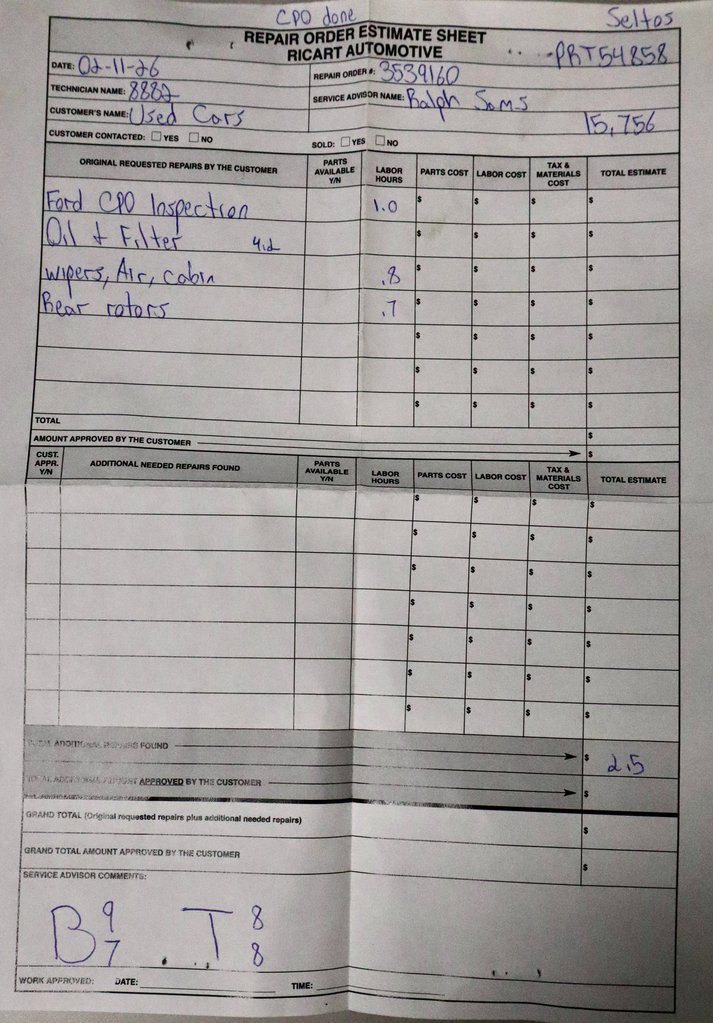 CPO done
Seltos
REPAIR ORDER ESTIMATE SHEET
RICART AUTOMOTIVE
PRT54858
DATE: 02-11-26
REPAIR ORDER #: 3539160
TECHNICIAN NAME: 8882
SERVICE ADVISOR NAME: Ralph Soms
CUSTOMER'S NAME: Used Cars
15,756
CUSTOMER CONTACTED: YES NO
SOLD: YES NO
ORIGINAL REQUESTED REPAIRS BY THE CUSTOMER PARTS AVAILABLE Y/N LABOR HOURS PARTS COST LABOR COST TAX & MATERIALS COST TOTAL ESTIMATE
Ford CPO Inspection 1.0 $ $ $ $
Oil + Filter 4.2 $ $ $ $
wipers, Air, cabin .8 $ $ $ $
Rear rotors .7 $ $ $ $
$ $ $ $
$ $ $ $
$ $ $ $
TOTAL $
AMOUNT APPROVED BY THE CUSTOMER $
CUST. APPR. Y/N ADDITIONAL NEEDED REPAIRS FOUND PARTS AVAILABLE Y/N LABOR HOURS PARTS COST LABOR COST TAX & MATERIALS COST TOTAL ESTIMATE
$ $ $ $
$ $ $ $
$ $ $ $
$ $ $ $
$ $ $ $
$ $ $ $
$ $ $ $
TOTAL ADDITIONAL REPAIRS FOUND $ 2.5
TOTAL ADDITIONAL AMOUNT APPROVED BY THE CUSTOMER $
GRAND TOTAL (Original requested repairs plus additional needed repairs) $
GRAND TOTAL AMOUNT APPROVED BY THE CUSTOMER $
SERVICE ADVISOR COMMENTS:
B 9 7 T 8 8
WORK APPROVED: DATE: TIME: